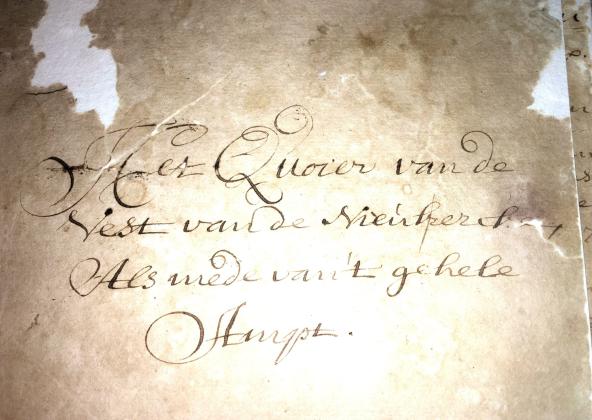 Het Quoier van de
Vest van de Nieukerck
Als mede van't gehele
Ampt.